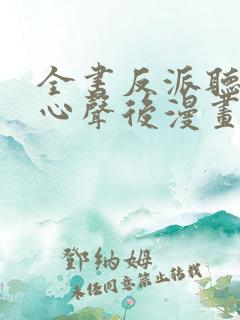 全書反派聽
心聲後漫畫
鄧納姆
未经同意禁止转载